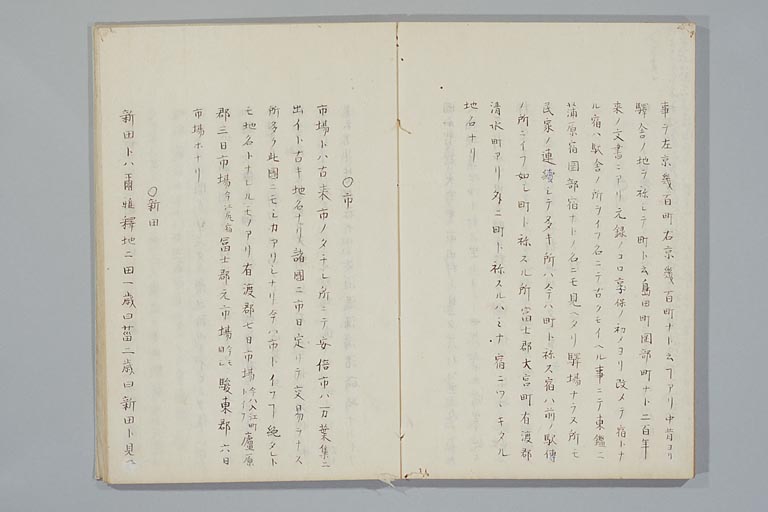 事ヲ左京幾百町右京幾百町ナト云フアリ中昔ヨリ
驛舎ノ地ヲ称シテ町ト云島田町岡部町ナト二百年
来ノ文書ニアリ元録ノコロ享保ノ初メヨリ改メテ宿トナ
ル宿ハ駅舎ノ所ヲイフ名ニテ古クモイヘル事ニテ東鑑ニ
蒲原宿岡部宿ナトノ名ニモ見ヘタリ驛場ナラヌ所モ
民家ノ連續シテ多キ所ハ今ハ町ト称ス宿ハ前ノ駅傳
ノ所ニイフ如シ町ト称スル所富士郡大宮町有渡郡
清水町アリ外ニ町ト称スルハミナ宿ニツヽキタル
地名ナリ
〇市
市場トハ古来市ノタチシ所ニテ安倍市ハ万葉集ニ
出イト古キ地名ナリ諸國ニ市日定リテ交易ヲナス
所多ク此國ニモシカアリシナリ今ハ市トイフフ絶タレト
モ地名トナレルモノアリ有渡郡七日市場今ハ入江町トイフ廬原
郡三日市場 富士郡元市場 駿東郡六日
市場ホナリ
〇新田
新田トハ爾雅釋地ニ田一歳曰菑二歳曰新田ト見ヘ